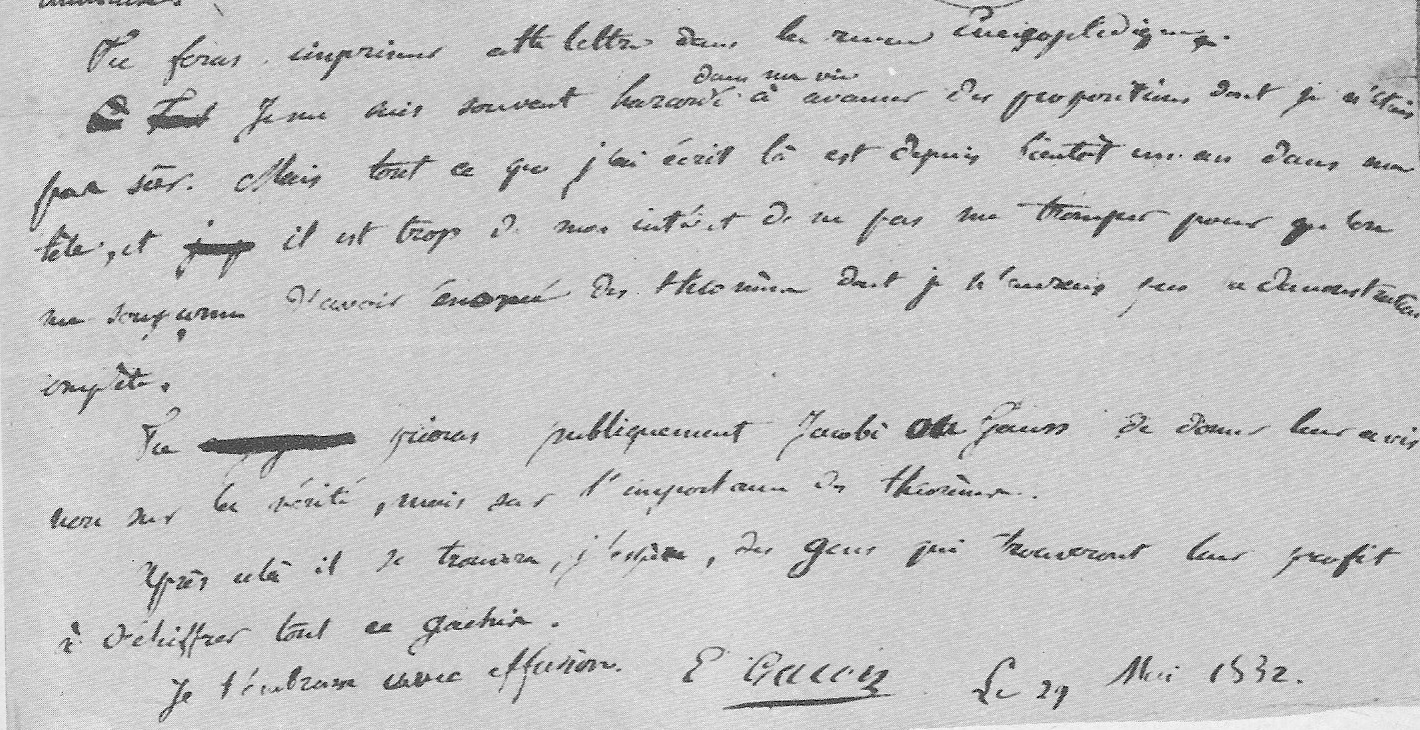 Tu feras imprimer cette lettre dans la revue Encyclopédique.
dans ma vie
Je me suis souvent hazardé à avancer des propositions dont je n'étais
pas sûr. Mais tout ce que j'ai écrit là est depuis bientôt un an dans ma
tête, et il est trop de mon intérêt de ne pas me tromper pour qu'on
me soupçonne d'avoir énoncé des théorèmes dont je n'aurais pas la démonstration
complète.
Tu prieras publiquement Jacobi ou Gauss de donner leur avis
non sur la vérité, mais sur l'importance des théorèmes.
Après cela il se trouvera, j'espère, des gens qui trouveront leur profit
à déchiffrer tout ce gachis.
Je t'embrasse avec effusion. E Galois Le 29 Mai 1832.